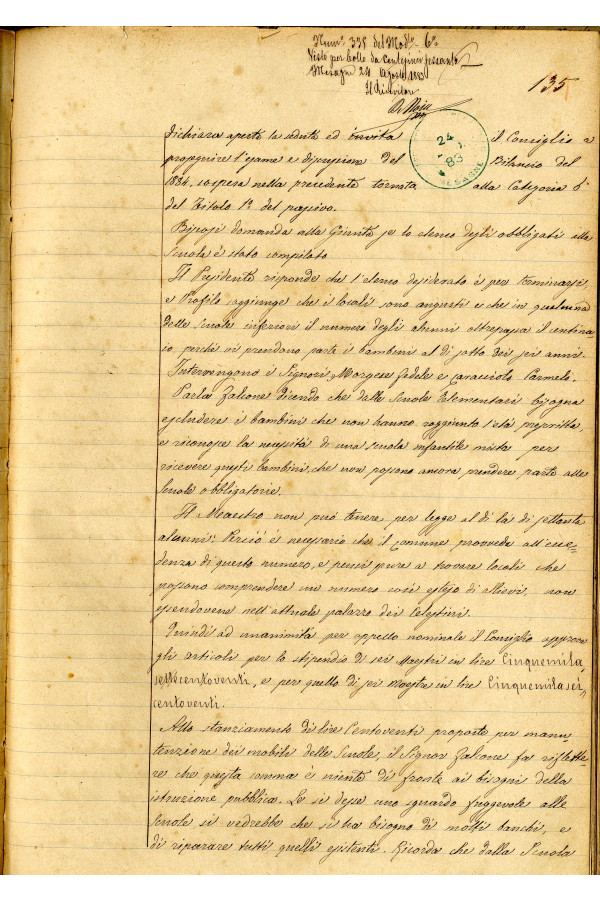 Num.º 338 del Mod.lo 6º
Visto per bollo da centesimi sessanta
Mesagne 24 Agosto 1883
Il Ricevitore
135
24
83
MESAGNE
dichiara aperta la seduta ed invita il Consiglio a
proseguire l'esame e discussione del Bilancio del
1884, sospesa nella precedente tornata alla Categoria 6ª
del Titolo 1º del passivo.
domanda alla Giunta se lo elenco degli obbligati alla
Scuola è stato compilato
Il Presidente risponde che l'elenco desiderato è per terminarsi,
e Profilo aggiunge che i locali sono angusti e che in qualcuna
delle scuole inferiori il numero degli alunni oltrepassa il centina-
io, perchè vi prendono parte i bambini al di sotto dei sei anni.
Intervengono i Signori Morgese Fedele e Caracciolo Carmelo.
Parla Falcone dicendo che dalle Scuole Elementari bisogna
escludere i bambini che non hanno raggiunto l'età prescritta,
e riconosce la necessità di una scuola infantile mista per
ricevere questi bambini, che non possono ancora prendere parte alle
Scuole obbligatorie.
Il Maestro non può tenere per legge al di là di settanta
alunni: Perciò è necessario che il Comune provveda all'ecce-
denza di questo numero, e pensi pure a trovare locali che
possono comprendere un numero così esteso di allievi, non
essendovene nell'attuale palazzo dei Celestini.
Quindi ad unanimità per appello nominale il Consiglio approva
gli articoli per lo stipendio di sei Maestri in lire Cinquemila
settecentoventi, e per quello di sei Maestre in lire Cinquemila sei
centoventi.
Allo stanziamento di lire Centoventi proposte per manu-
tenzione dei mobili delle Scuole, il Signor Falcone fa riflette-
re che questa somma è niente di fronte ai bisogni della
istruzione pubblica. Se si desse uno sguardo fuggevole alle
Scuole si vedrebbe che si ha bisogno di molti banchi, e
di riparare tutti quelli esistenti. Ricorda che dalla Scuola